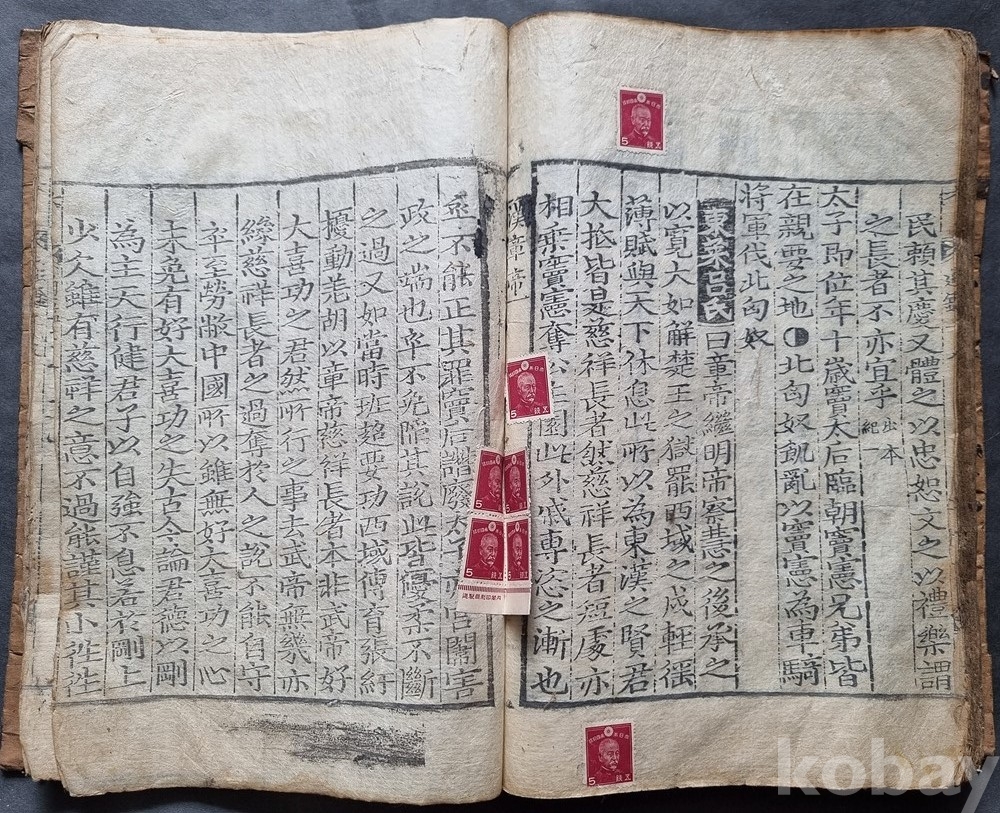 民賴其慶又體之以忠恕文之以禮樂謂
之長者不亦宜乎 出本紀
太子即位年十歲竇太后臨朝竇憲兄弟皆
在親要之地◐北匈奴飢亂以竇憲為車騎
將軍伐北匈奴
東萊呂氏曰章帝繼明帝察慧之後承之
以寬大如解楚王之獄罷西域之戍輕徭
薄賦與天下休息此所以為東漢之賢君
大抵皆是慈祥長者然慈祥長者短處亦
相乗竇憲奪公主園此外戚專恣之漸也
漢章帝
不能正其罪竇后譖廢宮闈害
政之端也卒不免陷其說此皆優柔不斷
之過又如當時班超要功西域傅育張紆
擾動羌胡以章帝慈祥長者本非武帝好
大喜功之君然所行之事去武帝無幾亦
緣慈祥長者之過奪於人之說不能自守
卒至勞敝中國所以雖無好大喜功之心
未免有好大喜功之失古今論君德以剛
為主天行健君子以自強不息若於剛上
少欠雖有慈祥之意不過能謹其小往往
5 五錢
5 五錢
5
5
5
5
5 五錢
kobay